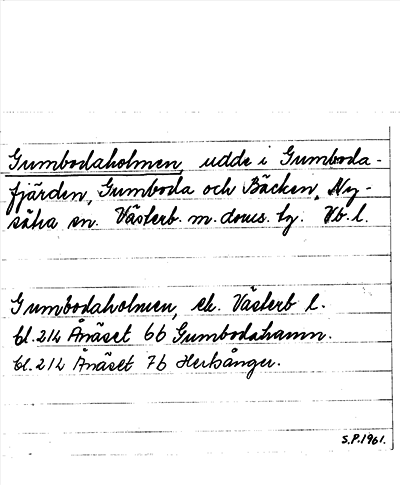 Gumbodaholmen, udde i Gumboda-
fjärden, Gumboda och Bäcken, Ny-
sätra sn. Västerb. m. doms. tg. Vb. l.
Gumbodaholmen, ek. Västerb l.
bl. 214 Ånäset 6b Gumbodahamn.
bl. 214 Ånäset 7b Herksånger.
S.P. 1961.